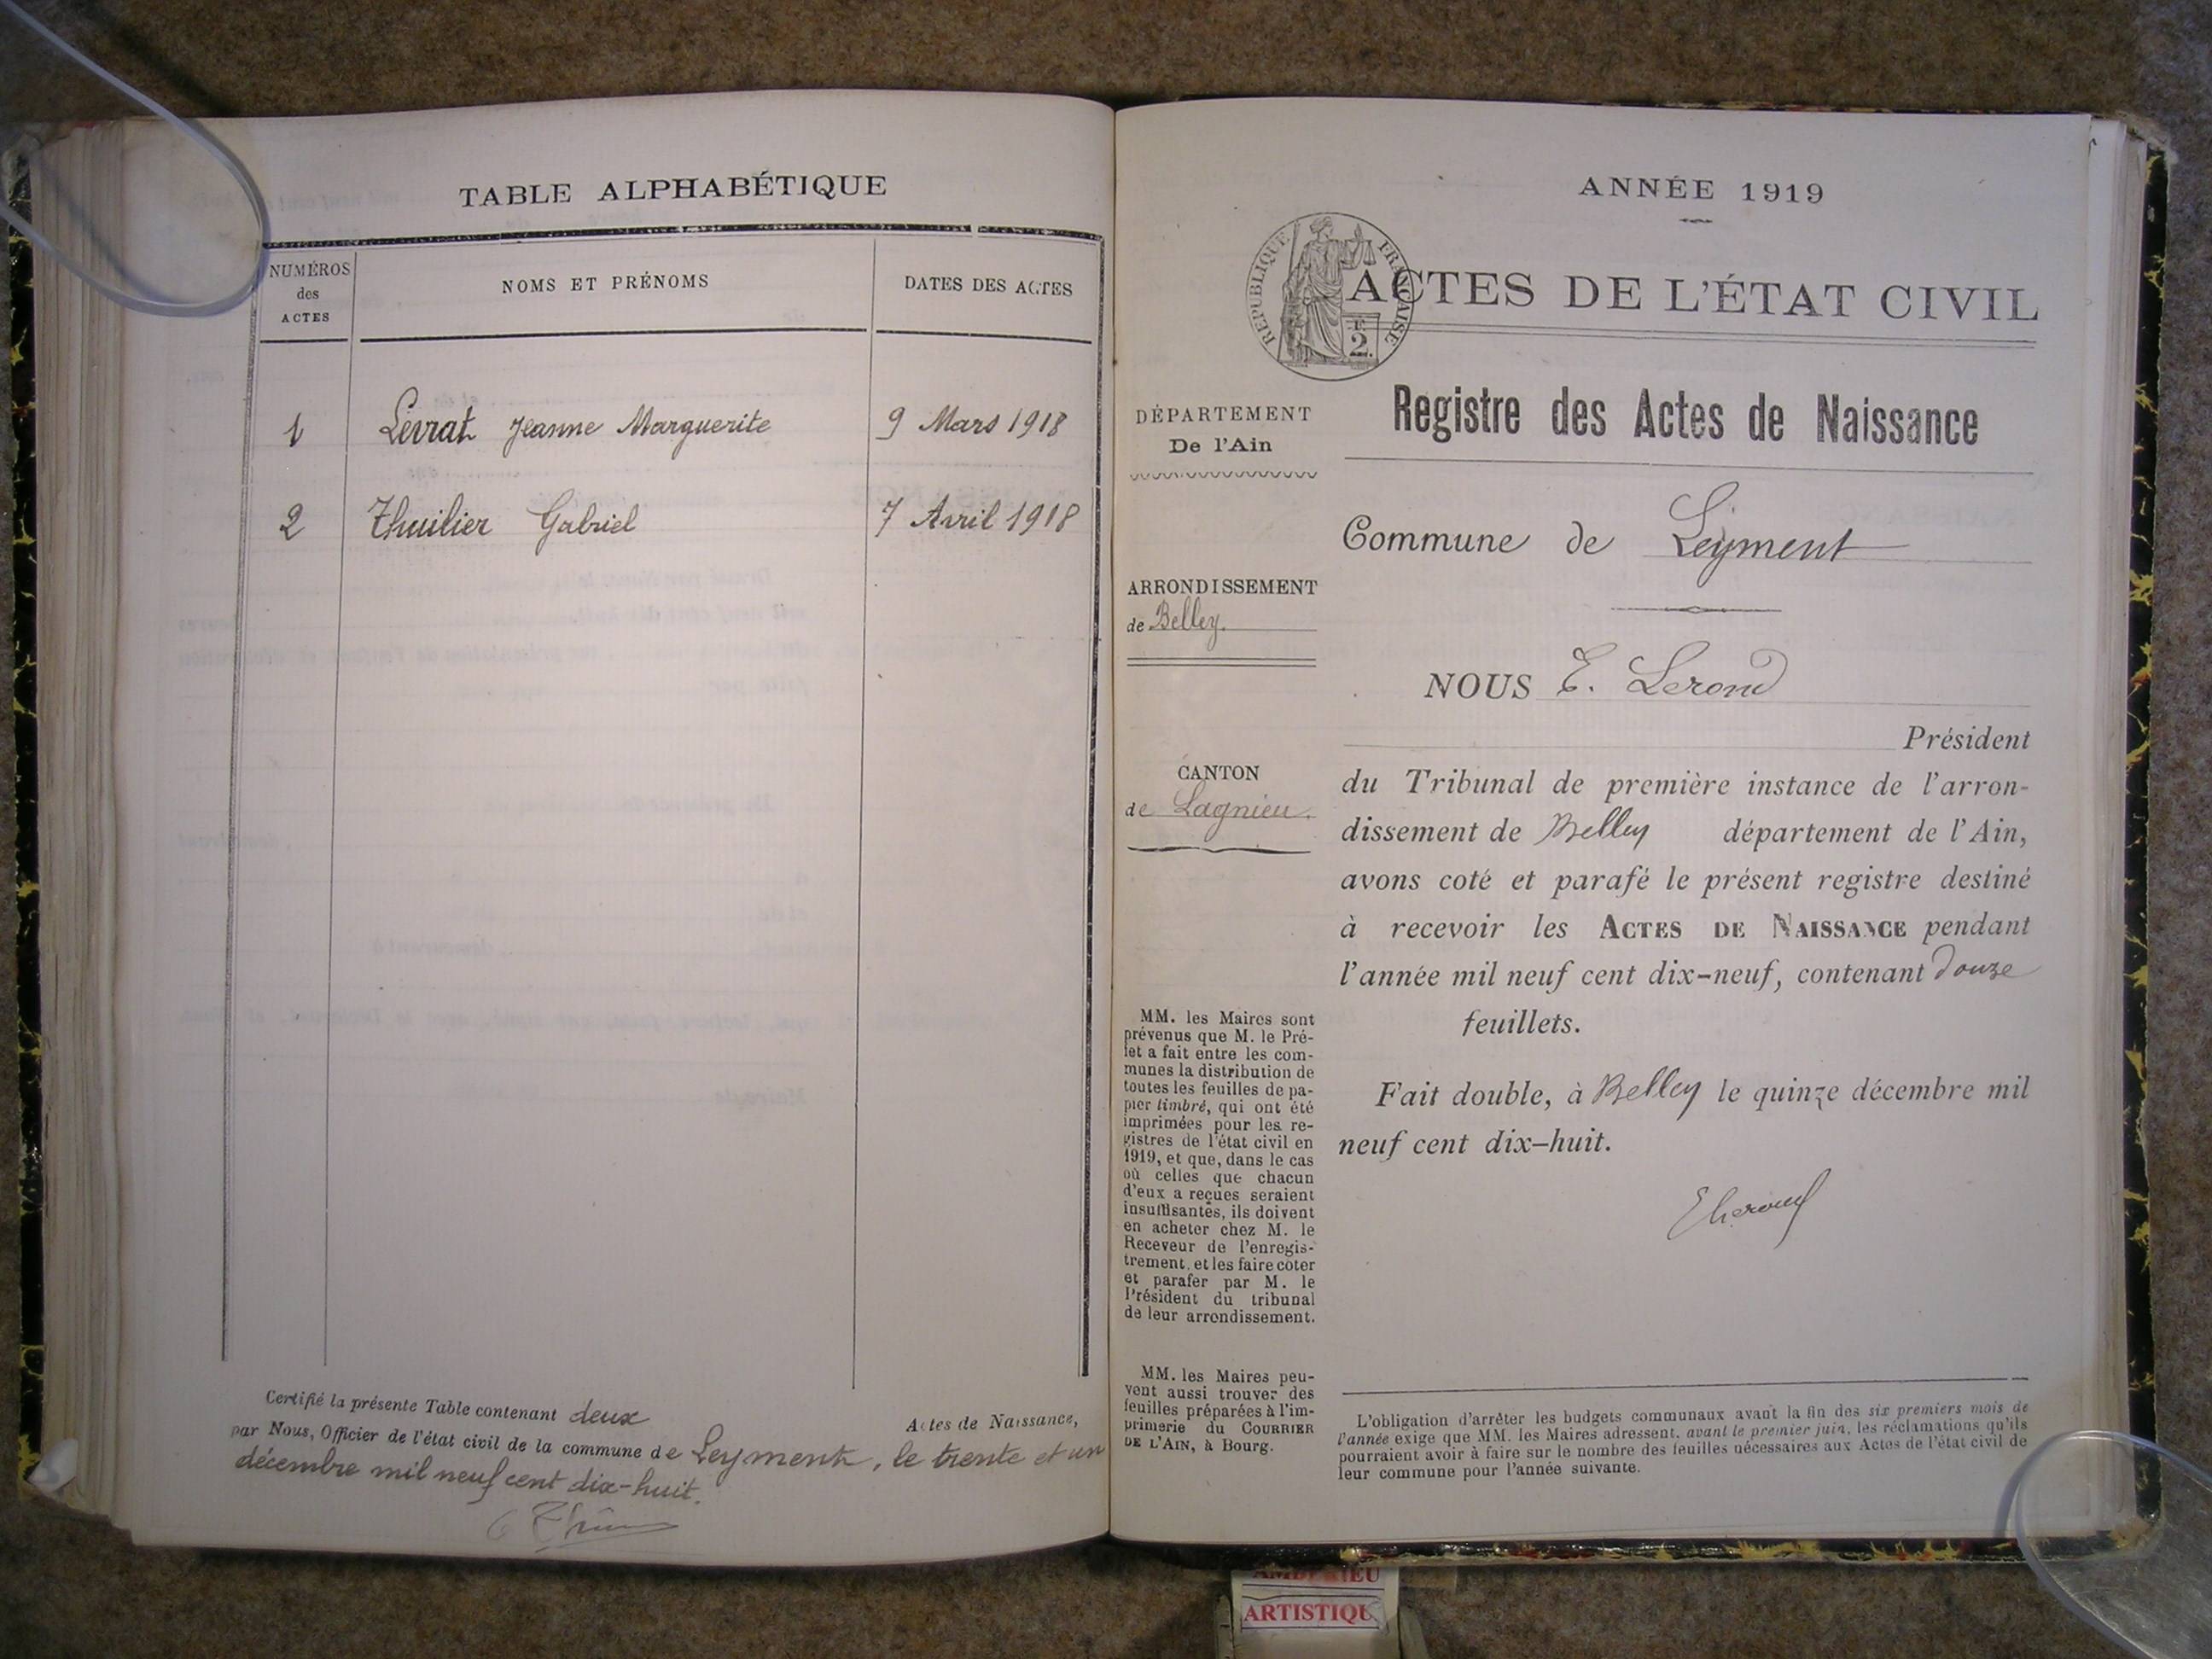 TABLE ALPHABÉTIQUE
NUMÉROS
des
ACTES
NOMS ET PRÉNOMS
DATES DES ACTES
1 Levrat Jeanne Marguerite 9 Mars 1918
2 Thuilier Gabriel 7 Avril 1918
Certifié la présente Table contenant deux Actes de Naissance,
par Nous, Officier de l'état civil de la commune de Leyment, le trente et un
décembre mil neuf cent dix-huit.
ANNÉE 1919
RÉPUBLIQUE FRANÇAISE
2F.
ACTES DE L'ÉTAT CIVIL
DÉPARTEMENT
De l'Ain
ARRONDISSEMENT
de Belley.
CANTON
de Lagnieu.
MM. les Maires sont
prévenus que M. le Pré-
fet a fait entre les com-
munes la distribution de
toutes les feuilles de pa-
pier timbré, qui ont été
imprimées pour les re-
gistres de l'état civil en
1919, et que, dans le cas
où celles que chacun
d'eux a reçues seraient
insuffisantes, ils doivent
en acheter chez M. le
Receveur de l'enregis-
trement, et les faire coter
et parafer par M. le
Président du tribunal
de leur arrondissement.
MM. les Maires peu-
vent aussi trouver des
feuilles préparées à l'im-
primerie du COURRIER
DE L'AIN, à Bourg.
Registre des Actes de Naissance
Commune de Leyment
NOUS E. Lerond
Président
du Tribunal de première instance de l'arron-
dissement de Belley département de l'Ain,
avons coté et parafé le présent registre destiné
à recevoir les ACTES DE NAISSANCE pendant
l'année mil neuf cent dix-neuf, contenant douze
feuillets.
Fait double, à Belley le quinze décembre mil
neuf cent dix-huit.
L'obligation d'arrêter les budgets communaux avant la fin des six premiers mois de
l'année exige que MM. les Maires adressent, avant le premier juin, les réclamations qu'ils
pourraient avoir à faire sur le nombre des feuilles nécessaires aux Actes de l'état civil de
leur commune pour l'année suivante.
ARTISTIQU